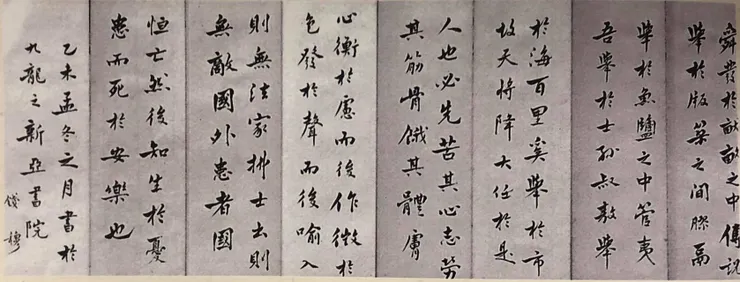 舜發於畎畝之中傅說
舉於版築之間膠鬲
舉於魚鹽之中管夷
吾舉於士孫叔敖舉
於海百里奚舉於市
故天將降大任於是
人也必先苦其心志勞
其筋骨餓其體膚
心衡於慮而後作徵於
色發於聲而後喻入
則無法家拂士出則
無敵國外患者國
恒亡然後知生於憂
患而死於安樂也
乙未孟冬之月書於
九龍之新亞書院
錢穆